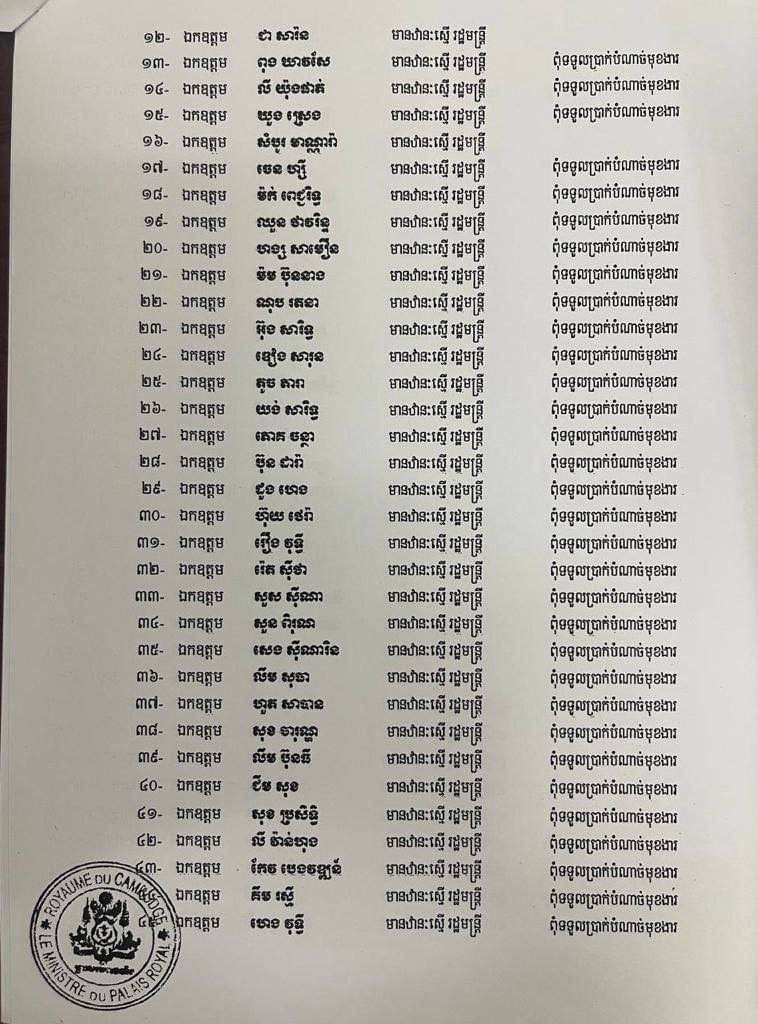 ១២- ឯកឧត្តម ជា សារ៉ន មានឋានៈស្មើ រដ្ឋមន្ត្រី
១៣- ឯកឧត្តម ពុង ឃាវសែ មានឋានៈស្មើ រដ្ឋមន្ត្រី ពុំទទួលប្រាក់បំណាច់មុខងារ
១៤- ឯកឧត្តម លី យ៉ុងផាត់ មានឋានៈស្មើ រដ្ឋមន្ត្រី ពុំទទួលប្រាក់បំណាច់មុខងារ
១៥- ឯកឧត្តម ឃួង ស្រេង មានឋានៈស្មើ រដ្ឋមន្ត្រី ពុំទទួលប្រាក់បំណាច់មុខងារ
១៦- ឯកឧត្តម សំបូរ មាណ្ណារ៉ា មានឋានៈស្មើ រដ្ឋមន្ត្រី
១៧- ឯកឧត្តម ចេន ហ្ស៊ី មានឋានៈស្មើ រដ្ឋមន្ត្រី ពុំទទួលប្រាក់បំណាច់មុខងារ
១៨- ឯកឧត្តម ម៉ក់ ពេជ្ររិទ្ធ មានឋានៈស្មើ រដ្ឋមន្ត្រី ពុំទទួលប្រាក់បំណាច់មុខងារ
១៩- ឯកឧត្តម ឈួន ថាវរិន្ទ មានឋានៈស្មើ រដ្ឋមន្ត្រី ពុំទទួលប្រាក់បំណាច់មុខងារ
២០- ឯកឧត្តម ហង្ស សាមឿន មានឋានៈស្មើ រដ្ឋមន្ត្រី ពុំទទួលប្រាក់បំណាច់មុខងារ
២១- ឯកឧត្តម ម៉ម ប៊ុននាង មានឋានៈស្មើ រដ្ឋមន្ត្រី ពុំទទួលប្រាក់បំណាច់មុខងារ
២២- ឯកឧត្តម ណុប រតនា មានឋានៈស្មើ រដ្ឋមន្ត្រី ពុំទទួលប្រាក់បំណាច់មុខងារ
២៣- ឯកឧត្តម អ៊ុង សារិទ្ធ មានឋានៈស្មើ រដ្ឋមន្ត្រី ពុំទទួលប្រាក់បំណាច់មុខងារ
២៤- ឯកឧត្តម ឌៀង សារុន មានឋានៈស្មើ រដ្ឋមន្ត្រី ពុំទទួលប្រាក់បំណាច់មុខងារ
២៥- ឯកឧត្តម តូច តារា មានឋានៈស្មើ រដ្ឋមន្ត្រី ពុំទទួលប្រាក់បំណាច់មុខងារ
២៦- ឯកឧត្តម យង់ សារិទ្ធ មានឋានៈស្មើ រដ្ឋមន្ត្រី ពុំទទួលប្រាក់បំណាច់មុខងារ
២៧- ឯកឧត្តម ភោគ ចន្ថា មានឋានៈស្មើ រដ្ឋមន្ត្រី ពុំទទួលប្រាក់បំណាច់មុខងារ
២៨- ឯកឧត្តម ប៊ុន ដារ៉ា មានឋានៈស្មើ រដ្ឋមន្ត្រី ពុំទទួលប្រាក់បំណាច់មុខងារ
២៩- ឯកឧត្តម ដួង ហេង មានឋានៈស្មើ រដ្ឋមន្ត្រី ពុំទទួលប្រាក់បំណាច់មុខងារ
៣០- ឯកឧត្តម ហ៊ុយ ថេរ៉ា មានឋានៈស្មើ រដ្ឋមន្ត្រី ពុំទទួលប្រាក់បំណាច់មុខងារ
៣១- ឯកឧត្តម រឿង វុទ្ធី មានឋានៈស្មើ រដ្ឋមន្ត្រី ពុំទទួលប្រាក់បំណាច់មុខងារ
៣២- ឯកឧត្តម រ៉េត ស៊ីថា មានឋានៈស្មើ រដ្ឋមន្ត្រី ពុំទទួលប្រាក់បំណាច់មុខងារ
៣៣- ឯកឧត្តម សួស ស៊ីណា មានឋានៈស្មើ រដ្ឋមន្ត្រី ពុំទទួលប្រាក់បំណាច់មុខងារ
៣៤- ឯកឧត្តម សួន ពិរុណ មានឋានៈស្មើ រដ្ឋមន្ត្រី ពុំទទួលប្រាក់បំណាច់មុខងារ
៣៥- ឯកឧត្តម សេង ស៊ីណារិន មានឋានៈស្មើ រដ្ឋមន្ត្រី ពុំទទួលប្រាក់បំណាច់មុខងារ
៣៦- ឯកឧត្តម លឹម សុធា មានឋានៈស្មើ រដ្ឋមន្ត្រី ពុំទទួលប្រាក់បំណាច់មុខងារ
៣៧- ឯកឧត្តម ហួត សាបាន មានឋានៈស្មើ រដ្ឋមន្ត្រី ពុំទទួលប្រាក់បំណាច់មុខងារ
៣៨- ឯកឧត្តម សុខ ចារុណ្ណ មានឋានៈស្មើ រដ្ឋមន្ត្រី ពុំទទួលប្រាក់បំណាច់មុខងារ
៣៩- ឯកឧត្តម លឹម ប៊ុនធី មានឋានៈស្មើ រដ្ឋមន្ត្រី ពុំទទួលប្រាក់បំណាច់មុខងារ
៤០- ឯកឧត្តម ជឹម សុខ មានឋានៈស្មើ រដ្ឋមន្ត្រី ពុំទទួលប្រាក់បំណាច់មុខងារ
៤១- ឯកឧត្តម សុខ ប្រសិទ្ធិ មានឋានៈស្មើ រដ្ឋមន្ត្រី ពុំទទួលប្រាក់បំណាច់មុខងារ
៤២- ឯកឧត្តម លី វ៉ាន់ហុង មានឋានៈស្មើ រដ្ឋមន្ត្រី ពុំទទួលប្រាក់បំណាច់មុខងារ
៤៣- ឯកឧត្តម កែវ បេងវឌ្ឍន៍ មានឋានៈស្មើ រដ្ឋមន្ត្រី ពុំទទួលប្រាក់បំណាច់មុខងារ
ឯកឧត្តម គឹម រស្មី មានឋានៈស្មើ រដ្ឋមន្ត្រី ពុំទទួលប្រាក់បំណាច់មុខងារ
ឯកឧត្តម ហេង វុទ្ធី មានឋានៈស្មើ រដ្ឋមន្ត្រី ពុំទទួលប្រាក់បំណាច់មុខងារ
ROYAUME DU CAMBODGE
LE MINISTRE DU PALAIS ROYAL